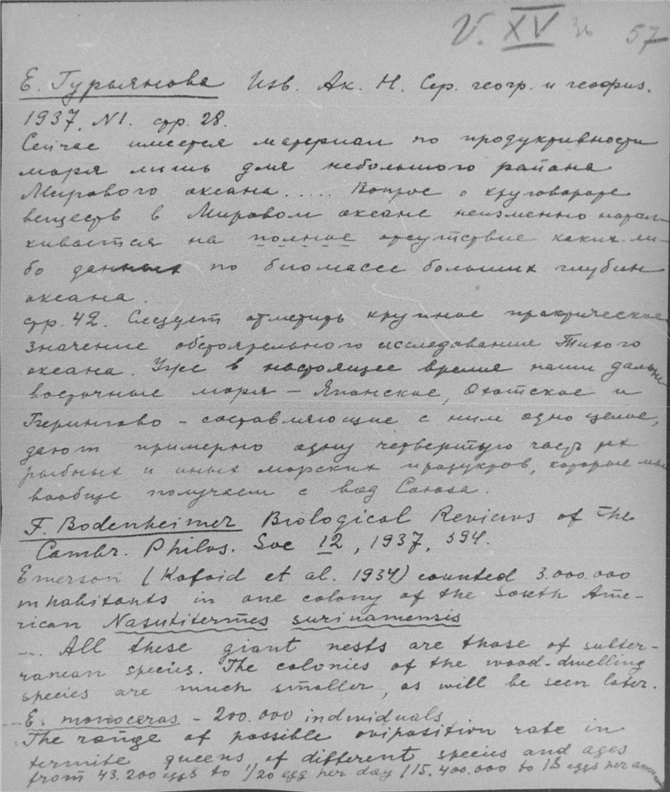 V. XV 57
Е. Гурьянова Изв. Ак. Н. Сер. геогр. и геофиз.
1937, N1. стр. 28.
Сейчас имеется материал по продуктивности
моря лишь для небольшого района
Мирового океана..... Вопрос о круговороте
веществ в Мировом океане неизменно натал
кивается на полное отсутствие каких-ли
бо данных по биомассе больших глубин
океана.
стр. 42. Следует отметить крупное практическое
значение обстоятельного исследования Тихого
океана. Уже в настоящее время наши дальне
восточные моря – Японское, Охотское и
Берингово – составляющие с ним одно целое,
дают примерно одну четвертую часть тех
рыбных и иных морских продуктов, которые мы
вообще получаем с вод Союза.
F. Bodenheimer Biological Reviews of the
Cambr. Philos. Soc 12, 1937, 394.
Emerson (Kofoid et al. 1934) counted 3.000.000
inhabitants in one colony of the South Ame-
rican Nasutitermes surinamensis
... All these giant nests are those of subter-
ranean species. The colonies of the wood-dwelling
species are much smaller, as will be seen later.
... E. monoceros – 200.000 individuals
The range of possible oviposition rate in
termite queens of different species and ages
from 43.200 eggs to 1/20 egg per day /15.400.000 to 18 eggs per annum